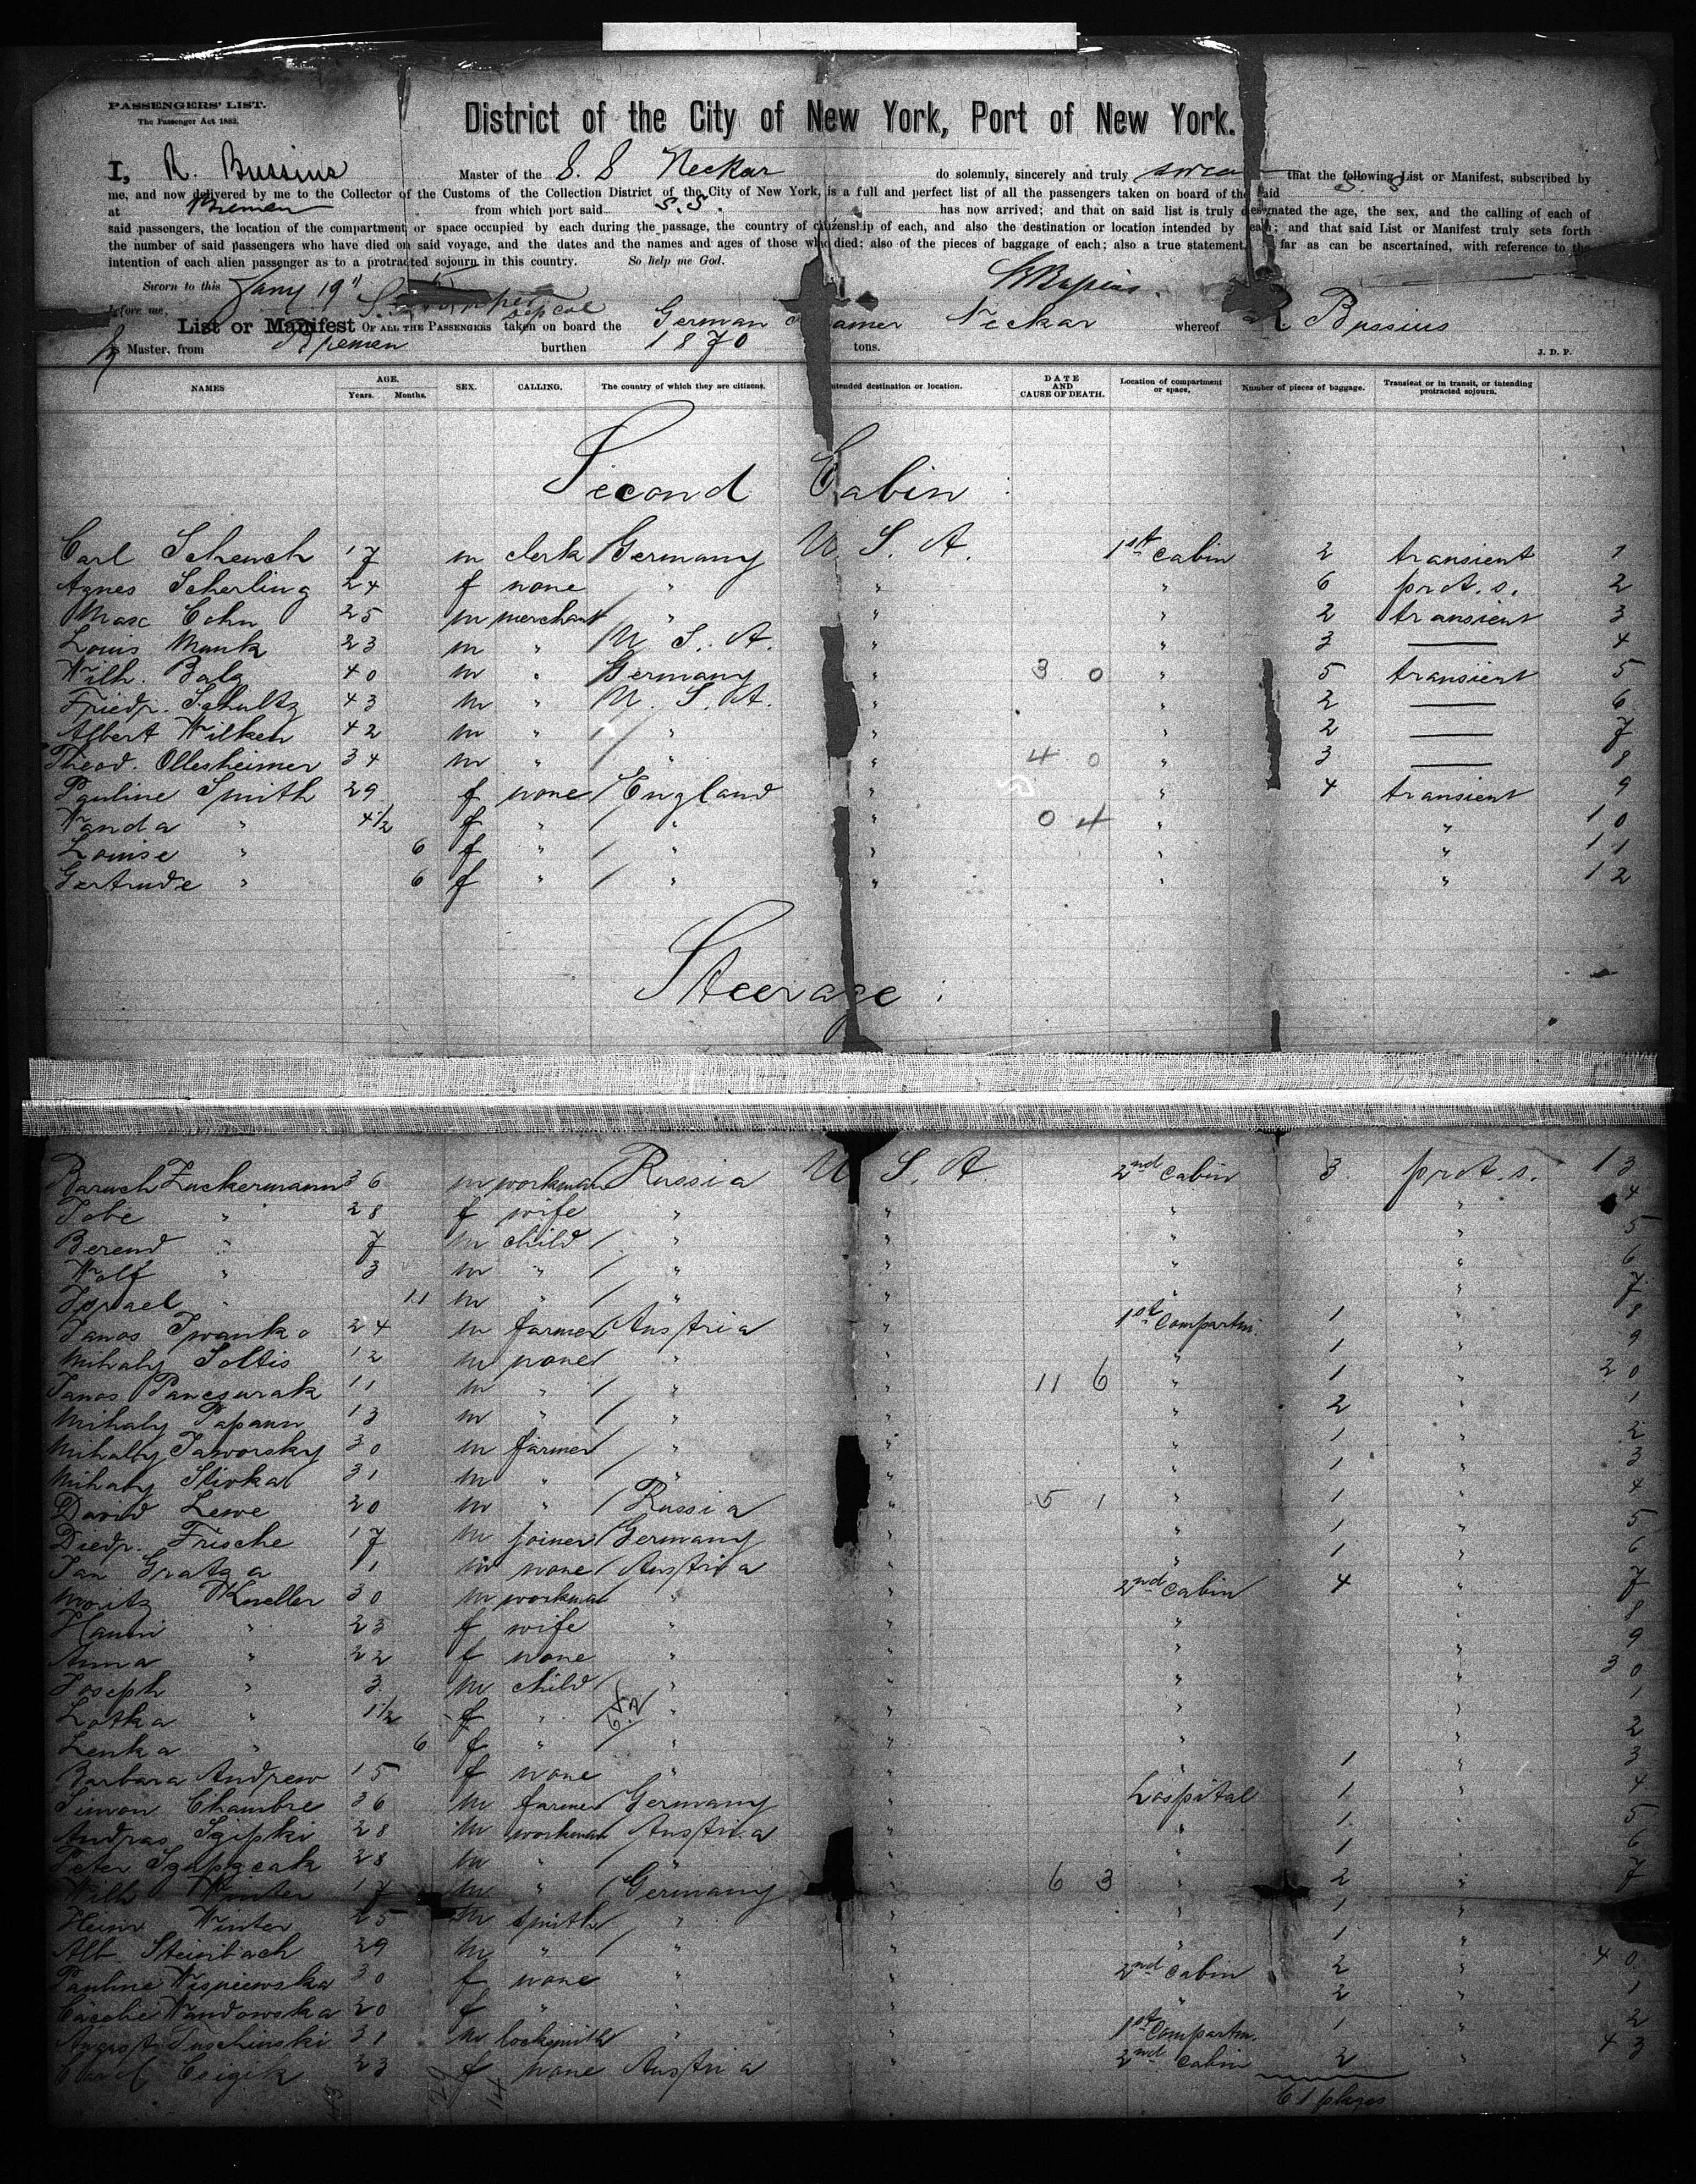 PASSENGERS' LIST.
The Passenger Act 1882.
District of the City of New York, Port of New York.
I, R. Bussius Master of the S. S Neckar do solemnly, sincerely and truly swear that the following List or Manifest, subscribed by
me, and now delivered by me to the Collector of the Customs of the Collection District of the City of New York, is a full and perfect list of all the passengers taken on board of the said S. S.
at Bremen from which port said S.S. has now arrived; and that on said list is truly designated the age, the sex, and the calling of each of
said passengers, the location of the compartment or space occupied by each during the passage, the country of citizenship of each, and also the destination or location intended by each; and that said List or Manifest truly sets forth
the number of said passengers who have died on said voyage, and the dates and the names and ages of those who died; also of the pieces of baggage of each; also a true statement, far as can be ascertained, with reference to the
intention of each alien passenger as to a protracted sojourn in this country. So help me God.
Sworn to this Jany 19" RBussius.
before me,
List or Manifest OF ALL THE PASSENGERS taken on board the German Steamer Neckar whereof R Bussius
is Master, from Bremen burthen 1870 tons. J. D. P.
NAMES AGE. Years. Months. SEX. CALLING. The country of which they are citizens. Intended destination or location. DATE AND CAUSE OF DEATH. Location of compartment or space. Number of pieces of baggage. Transient or in transit, or intending protracted sojourn.
Second Cabin:
Carl Schench 17 m clerk Germany U S. A. 1st cabin 2 transient 1
Agnes Scherling 24 f none " " " 6 prot. s. 2
Max Cohn 25 m merchant " " " 2 transient 3
Louis Munk 23 m " U. S. A. " " 3 — 4
Wilh. Balg 40 m " Germany " 3 0 " 5 transient 5
Friedr. Schultz 43 m " U. S. A. " " 2 — 6
Albert Wilken 42 m " " " " 2 — 7
Theod. Ollesheimer 34 m " " " 4 0 " 3 — 8
Pauline Smith 29 f none England " " 4 transient 9
Wanda " 4 1/2 f " " " 0 4 " " 10
Louise " 6 f " " " " " 11
Gertrude " 6 f " " " " " 12
Steerage:
Baruch Zuckermann 36 m workman Russia U S. A 2nd cabin 3. prot. s. 13
Tobe " 28 f wife " " " " 4
Berend " 7 m child " " " " 5
Wolf " 3 m " " " " " 6
Israel " 11 m " " " " " 7
Janos Iwanko 24 m farmer Austria " 1st Compartm. 1 " 8
Mihaly Soltis 12 m none " " " 1 " 9
Janos Pancsurak 11 m " " " 11 6 " 1 " 20
Mihaly Papann 13 m " " " " 2 " 1
Mihaly Jaworsky 30 m farmer " " " 1 " 2
Mihaly Slivka 31 m " " " " 1 " 3
David Lewe 20 m " Russia " 5 1 " 1 " 4
Diedr. Frische 17 m joiner Germany " " 1 " 5
Jan Gratza 11 m none Austria " " 1 " 6
Moritz Kneller 30 m workman " " 2nd cabin 4 " 7
Hanni " 23 f wife " " " " 8
Anna " 22 f none " " " " 9
Joseph " 3 m child " " " " 30
Lotka " 1 1/2 f " " " " " 1
Lenka " 6 f " " " " " 2
Barbara Andrew 15 f none " " " 1 " 3
Simon Chambre 36 m farmer Germany " Hospital 1 " 4
Andras 28 m workman Austria " " 1 " 5
Peter 28 m " " " " 1 " 6
Wilh Winter 17 m " Germany " 6 3 " 2 " 7
Heinr Winter 25 m smith " " " 1 "
Alb. Steinbach 29 m " " " " 1 "
Pauline Wisniewska 30 f none " " 2nd cabin 2 " 40
Wandowska 20 f " " " " 2 " 1
August Tuschinski 31 m locksmith " " 1st Compartm. 1 " 2
Csizik 23 f none Austria " 2nd cabin 2 " 43
61